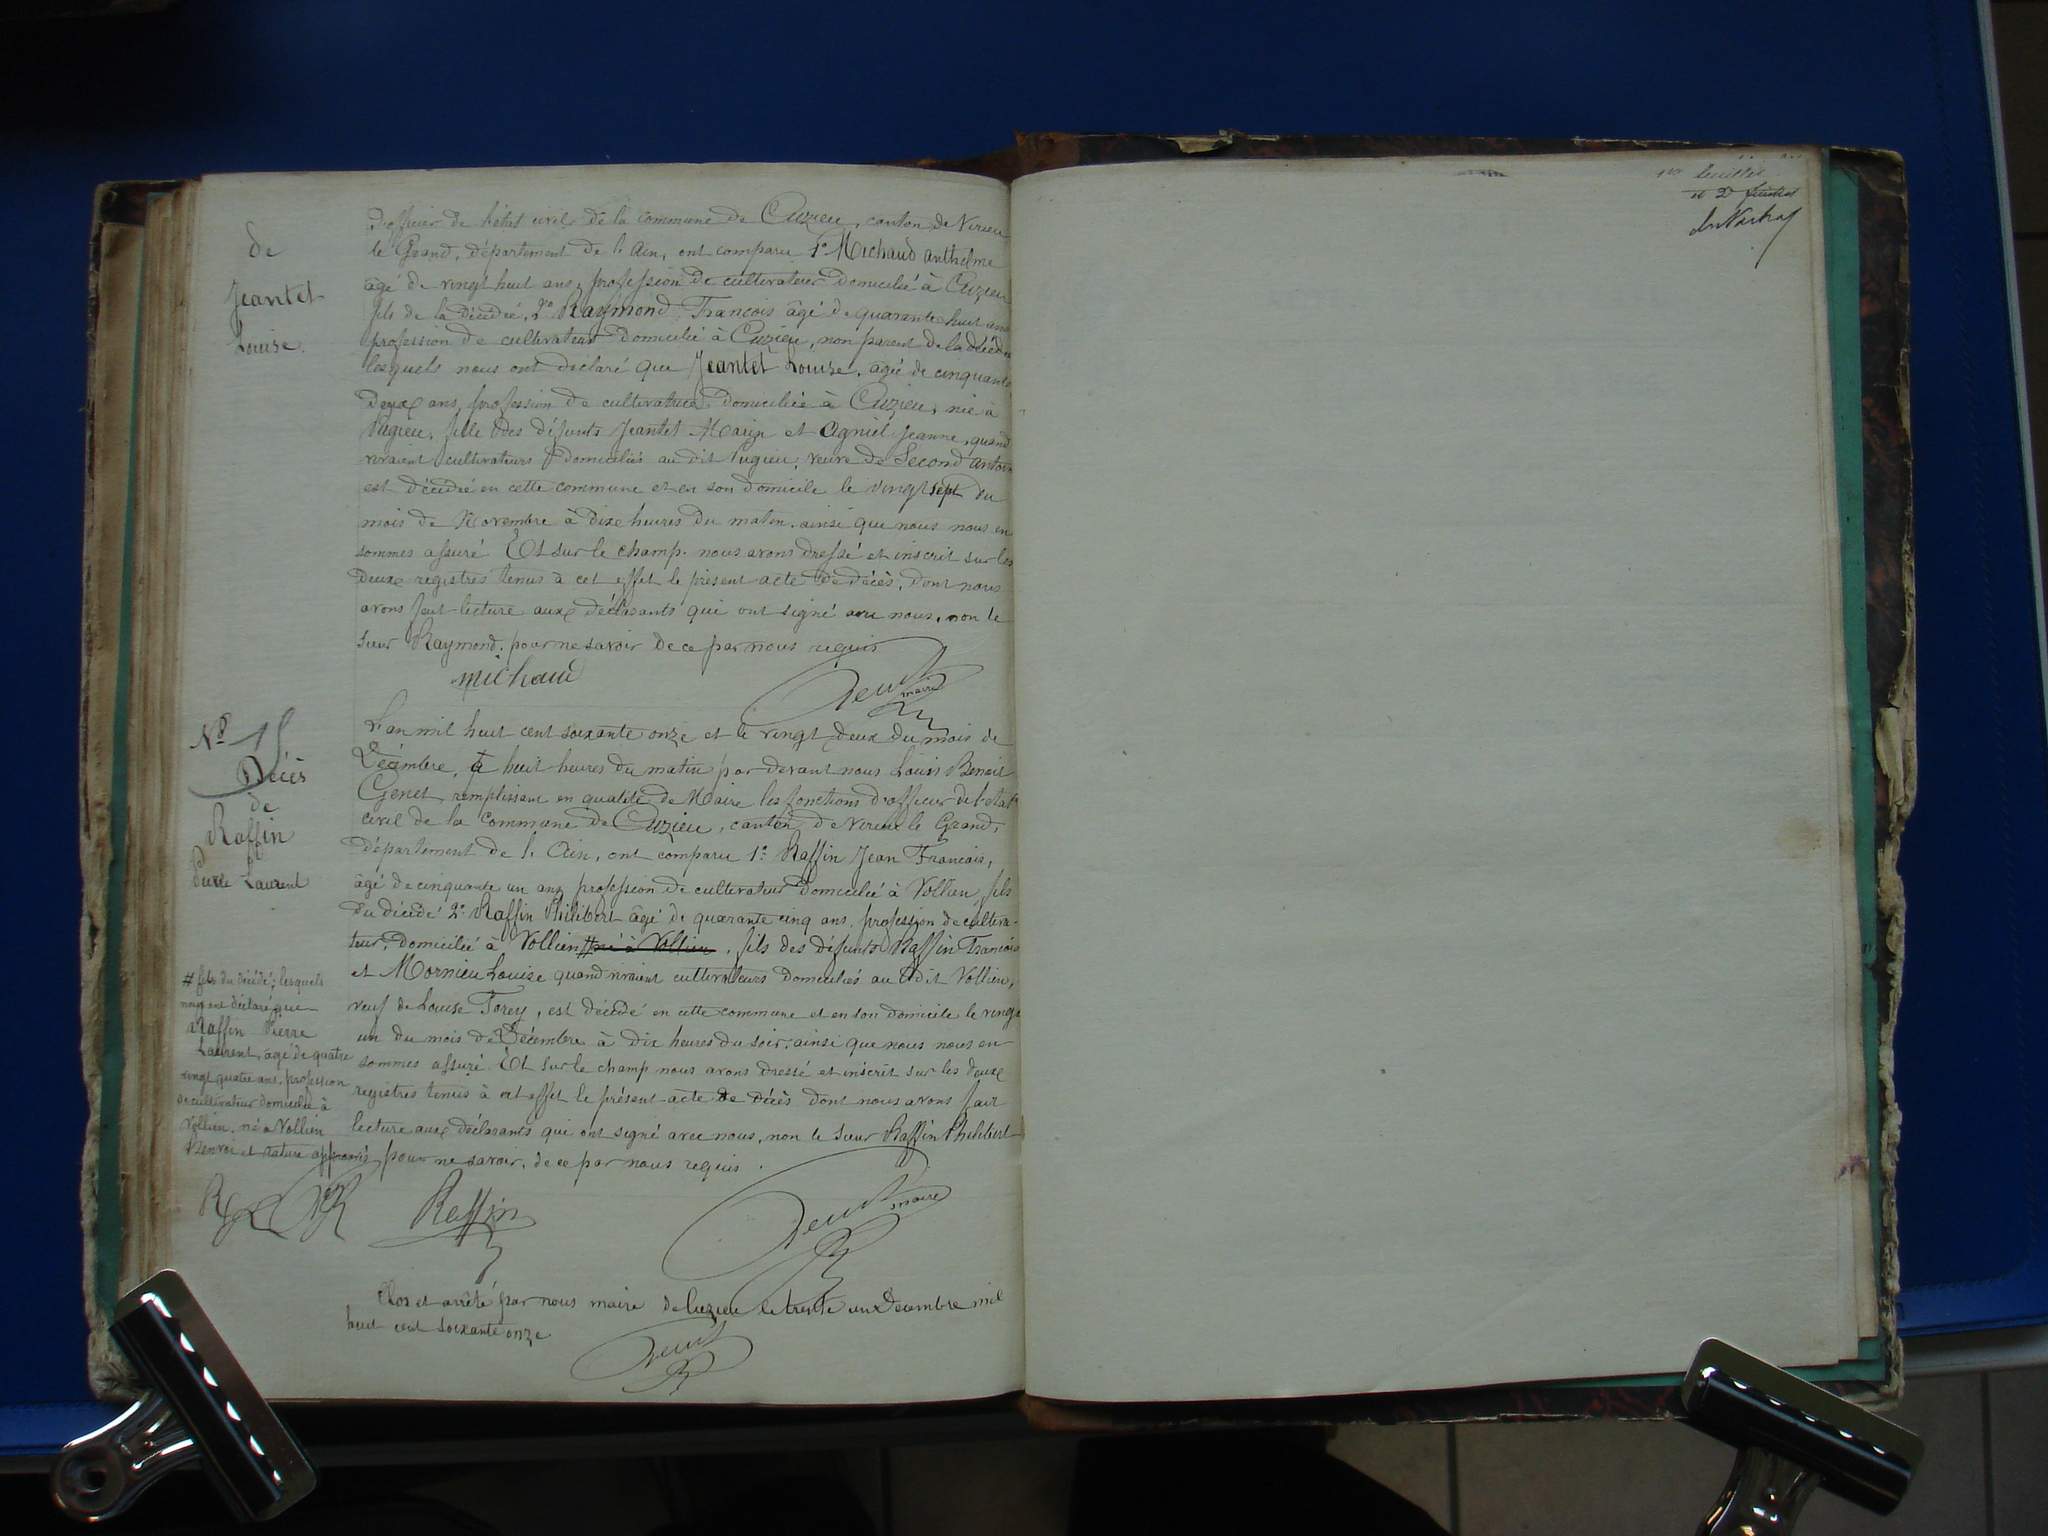 de
Jeantet
Louise.
d'officier de l'état civil de la commune de Cuzieu, canton de Virieu
le Grand, département de l'Ain, ont comparu 1° Michaud anthelme
âgé de vingt huit ans, profession de cultivateur domicilié à Cuzieu
fils de la décédée, 2° Raymond François âgé de quarante huit ans
profession de cultivateur domicilié à Cuzieu, non parent de la décédée
lesquels nous ont déclaré que Jeantet Louise, agée de cinquante
deux ans, profession de cultivatrice domiciliée à Cuzieu, née à
Pugieu, fille des défunts Jeantet Marin et Agniel Jeanne, quand
vivaient cultivateurs domiciliés au dit Pugieu, veuve de Second antoine
est décédée en cette commune et en son domicile le vingt sept du
mois de Novembre à dix heures du matin, ainsi que nous nous en
sommes assuré Et sur le champ, nous avons dressé et inscrit sur les
deux registres tenus à cet effet le présent acte de décès, dont nous
avons fait lecture aux déclarants qui ont signé avec nous, non le
sieur Raymond, pour ne savoir de ce par nous requis
michaud
maire
N°
Décès
de
Raffin
Pierre Laurent
L'an mil huit cent soixante onze et le vingt deux du mois de
Décembre, à huit heures du matin par devant nous Louis Benoit
Genet, remplissant en qualité de Maire les fonctions d'officier de l'état
civil de la commune de Cuzieu, canton de Virieu le Grand,
département de l'Ain, ont comparu 1° Raffin Jean François,
âgé de cinquante un ans profession de cultivateur domicilié à Vollien, fils
du décédé 2° Raffin Philibert âgé de quarante cinq ans, profession de cultiva-
teur, domicilié à Vollien # né à Vollien, fils des défunts Raffin François
et Mornieu Louise quand vivaient cultivateurs domiciliés au dit Vollien,
veuf de Louise Torey, est décédé en cette commune et en son domicile le vingt
un du mois de Décembre à dix heures du soir; ainsi que nous nous en
sommes assuré. Et sur le champ nous avons dressé et inscrit sur les deux
registres tenus à cet effet le présent acte de décès dont nous avons fait
lecture aux déclarants qui ont signé avec nous, non le sieur Raffin Philibert
pour ne savoir, de ce par nous requis.
# fils du décédé; lesquels
nous ont déclaré que
Raffin Pierre
Laurent, âgé de quatre
vingt quatre ans, profession
de cultivateur domicilié à
Vollien, né à Vollien
Renvoi et rature approuvés
Raffin
maire
Clos et arrêté par nous maire de Cuzieu le trente un Décembre mil
huit cent soixante onze